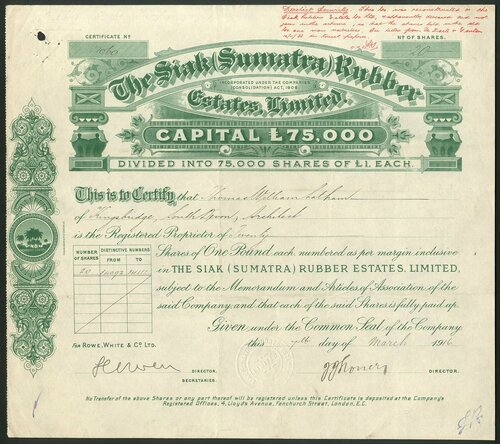 CERTIFICATE Nº
Nº OF SHARES.
The Siak (Sumatra) Rubber
INCORPORATED UNDER THE COMPANIES
(CONSOLIDATION) ACT, 1908
Estates, Limited.
CAPITAL £75,000
DIVIDED INTO 75,000 SHARES OF £1. EACH.
This is to Certify that Thomas William Latham
of Kingsbridge, South Devon, Architect
is the Registered Proprietor of Twenty
NUMBER OF SHARES
DISTINCTIVE NUMBERS
FROM TO
20
Shares of One Pound each, numbered as per margin inclusive
in THE SIAK (SUMATRA) RUBBER ESTATES, LIMITED,
subject to the Memorandum and Articles of Association of the
said Company and that each of the said Shares is fully paid up.
Given under the Common Seal of the Company
this 7th day of March 1916
FOR ROWE, WHITE & Cº LTD.
DIRECTOR.
SECRETARIES.
DIRECTOR.
No Transfer of the above Shares or any part thereof will be registered unless this Certificate is deposited at the Company's
Registered Offices, 4, Lloyds Avenue, Fenchurch Street, London, E.C.